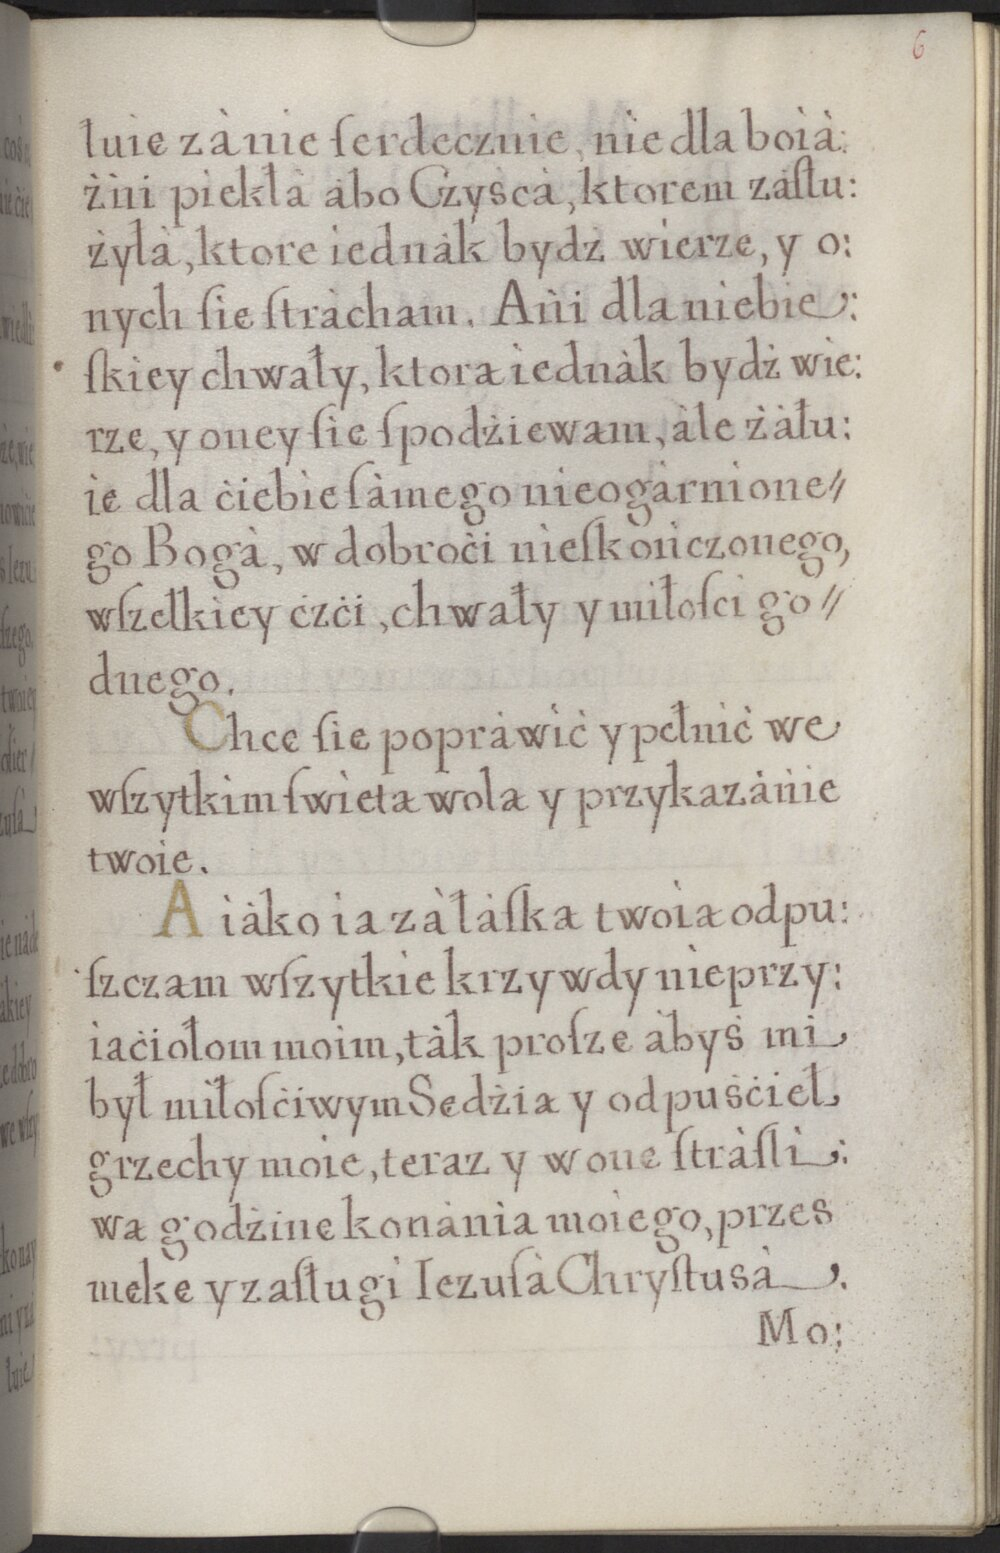 6
łuie zà nie ſerdecznie, nie dla boià:
żńi piekłà àbo Czyscà, ktorem zàſłu:
żyłà, ktore iednàk bydż wierze, y o:
nych ſie ſtràcham. Ańi dla niebie:
ſkiey chwały, ktora iednàk bydż wie:
rze, y oney ſie ſpodżiewam, àle żàłu:
ie dla ċiebie ſàmego nieogàrnione//
go Bogà, w dobroċi nieſkończonego,
wſzelkiey ċzċi, chwały y miłoſci go//
dnego.
Chce ſie popràwiċ y pełniċ we
wſzytkim ſwieta wola y przykazàńie
twoie.
A iàko ia zà łàſka twoia odpu:
ſzczam wſzytkie krzywdy nieprzy:
iaċiołom moim, tàk proſze àbyṡ mi
był miłoſċiwym Sedżia y odpuṡċieł
grzechy moie, teraz y w one ſtràſli:
wa godżine konània moiego, przes
meke y zaſługi Iezuſà Chryſtusà.
Mo: